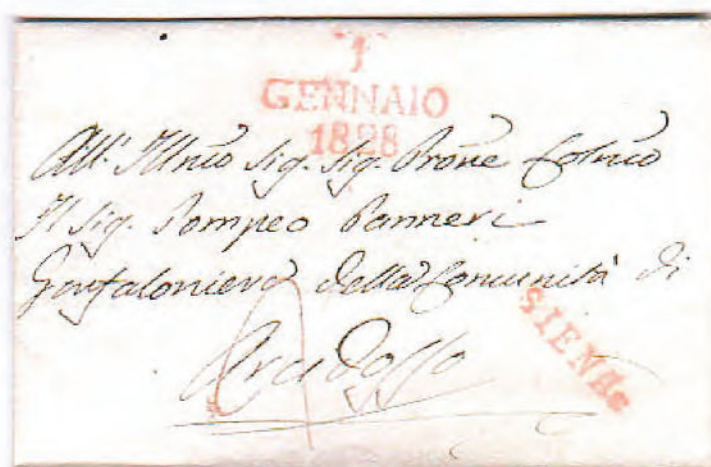 1
GENNAIO
1828
All'. Illmo Sig. Sig. Prone Colmo
Il Sig. Pompeo Panneri
Gonfaloniere della Comunità di
SIENA
Arcidosso